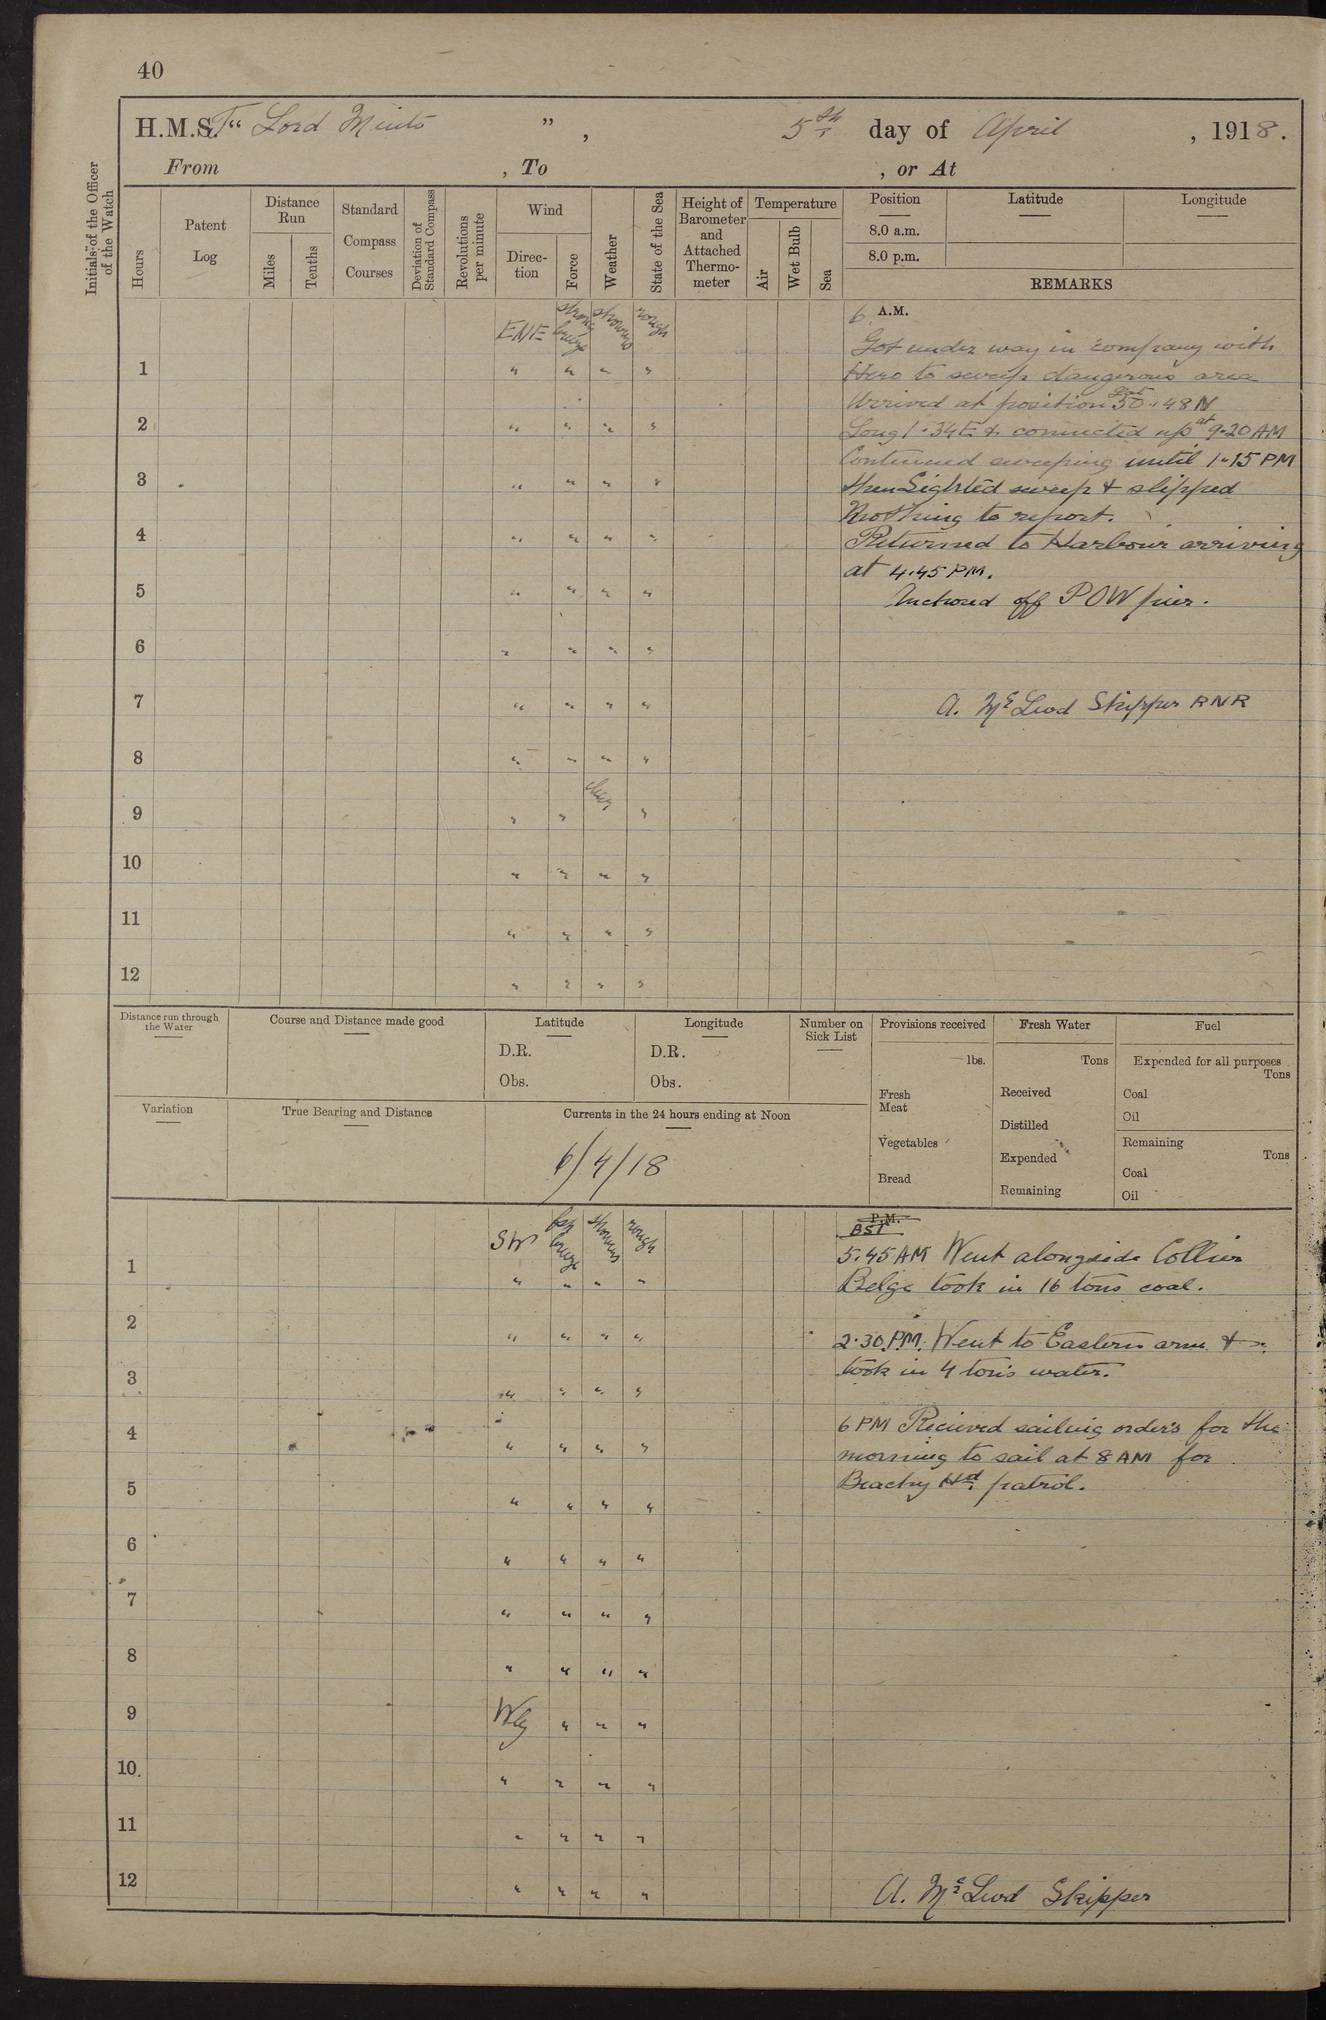 40
H.M.S.T “ Lord Minto ” , 5th day of April , 1918.
From , To , or At
Initials of the Officer of the Watch
Hours
Patent Log
Distance Run
Miles
Tenths
Standard Compass Courses
Deviation of Standard Compass
Revolutions per minute
Wind
Direction
Force
Weather
State of the Sea
Height of Barometer and Attached Thermometer
Temperature
Air
Wet Bulb
Sea
Position
8.0 a.m.
8.0 p.m.
Latitude
Longitude
REMARKS
6 A.M.
ENE strong breeze showers rough
Got under way in company with
1 " " " "
Hero to sweep dangerous area
Arrived at position Lat 50.48 N
2 " " " "
Long 1.34 E & connected up at 9.20 AM
Continued sweeping until 1.15 PM
3 " " " "
then Sighted sweep & slipped
Nothing to report.
4 " " " "
Returned to Harbour arriving
at 4.45 PM.
5 " " " "
Anchored off POW pier.
6 " " " "
7 " " " "
A. McLeod Skipper RNR
8 " " " "
clear
9 " " "
10 " " " "
11 " " " "
12 " " " "
Distance run through the Water
Course and Distance made good
Latitude
D.R.
Obs.
Longitude
D.R.
Obs.
Number on Sick List
Provisions received
lbs.
Fresh Meat
Vegetables
Bread
Fresh Water
Tons
Received
Distilled
Expended
Remaining
Fuel
Expended for all purposes
Tons
Coal
Oil
Remaining
Tons
Coal
Oil
Variation
True Bearing and Distance
Currents in the 24 hours ending at Noon
6/4/18
P.M.
BST
SW fsh breeze showers rough
5.45 AM Went alongside Collier
1 " " " "
Belge took in 16 tons coal.
2 " " " "
2.30 P.M. Went to Eastern arm &
took in 4 tons water.
3 " " " "
6 PM Recieved sailing orders for the
4 " " " "
morning to sail at 8 AM for
Beachy Hd patrol.
5 " " " "
6 " " " "
7 " " " "
8 " " " "
9 Wly " " "
10 " " " "
11 " " " "
12 " " " "
A. McLeod Skipper